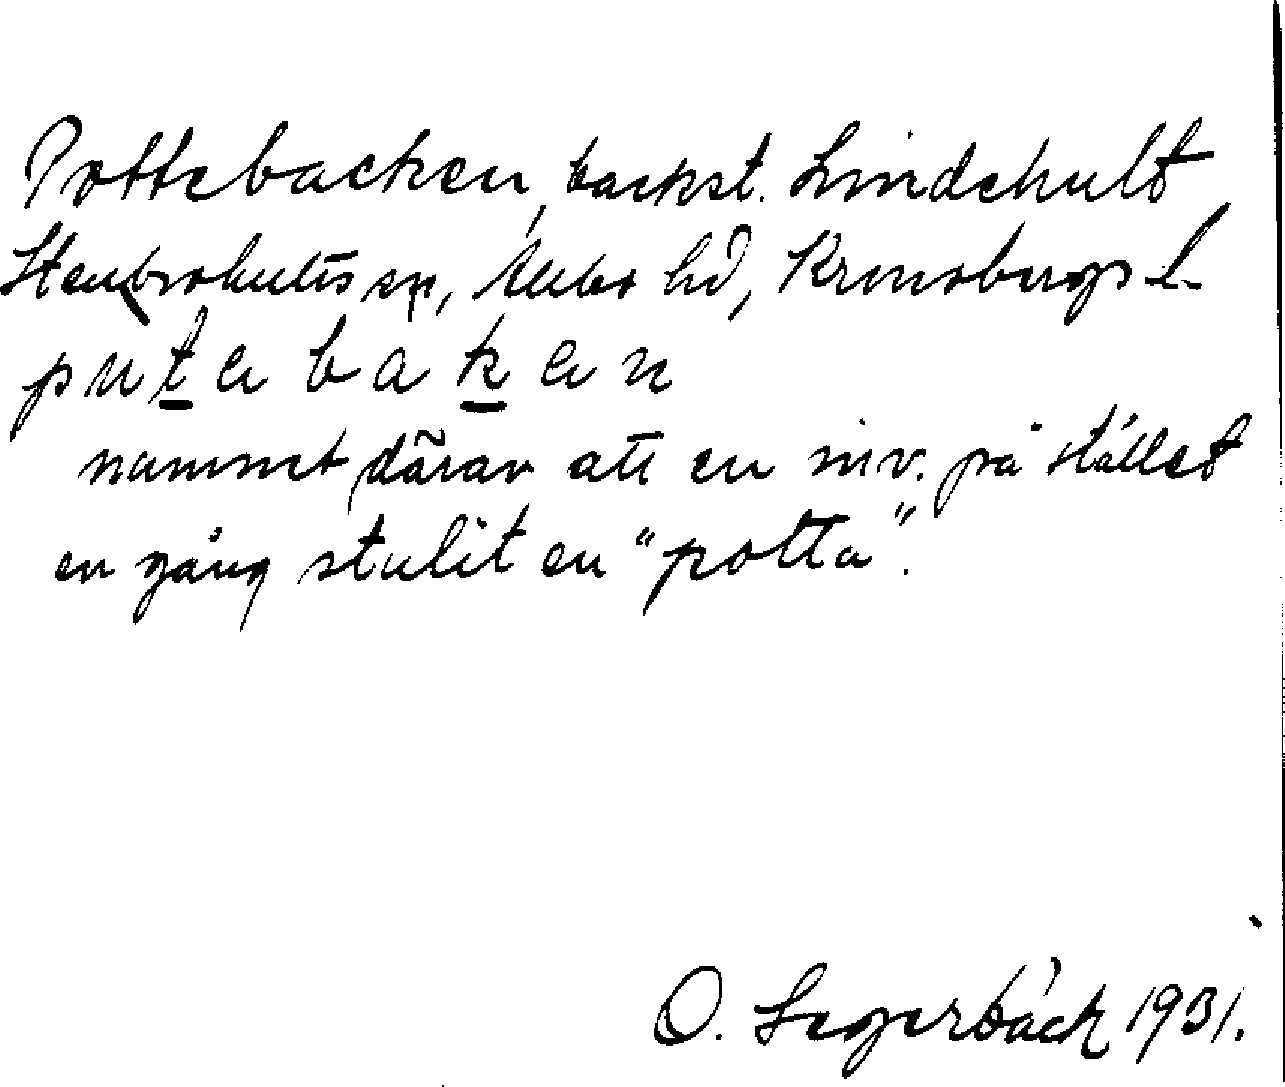 Pottebacken, backst. Lindehult
Stenbrohults sn, Allbo hd, Kronobergs L.
putabakan
namnet därav att en inv. på stället
en gång stulit en "potta".
O. Segerbäck 1931.